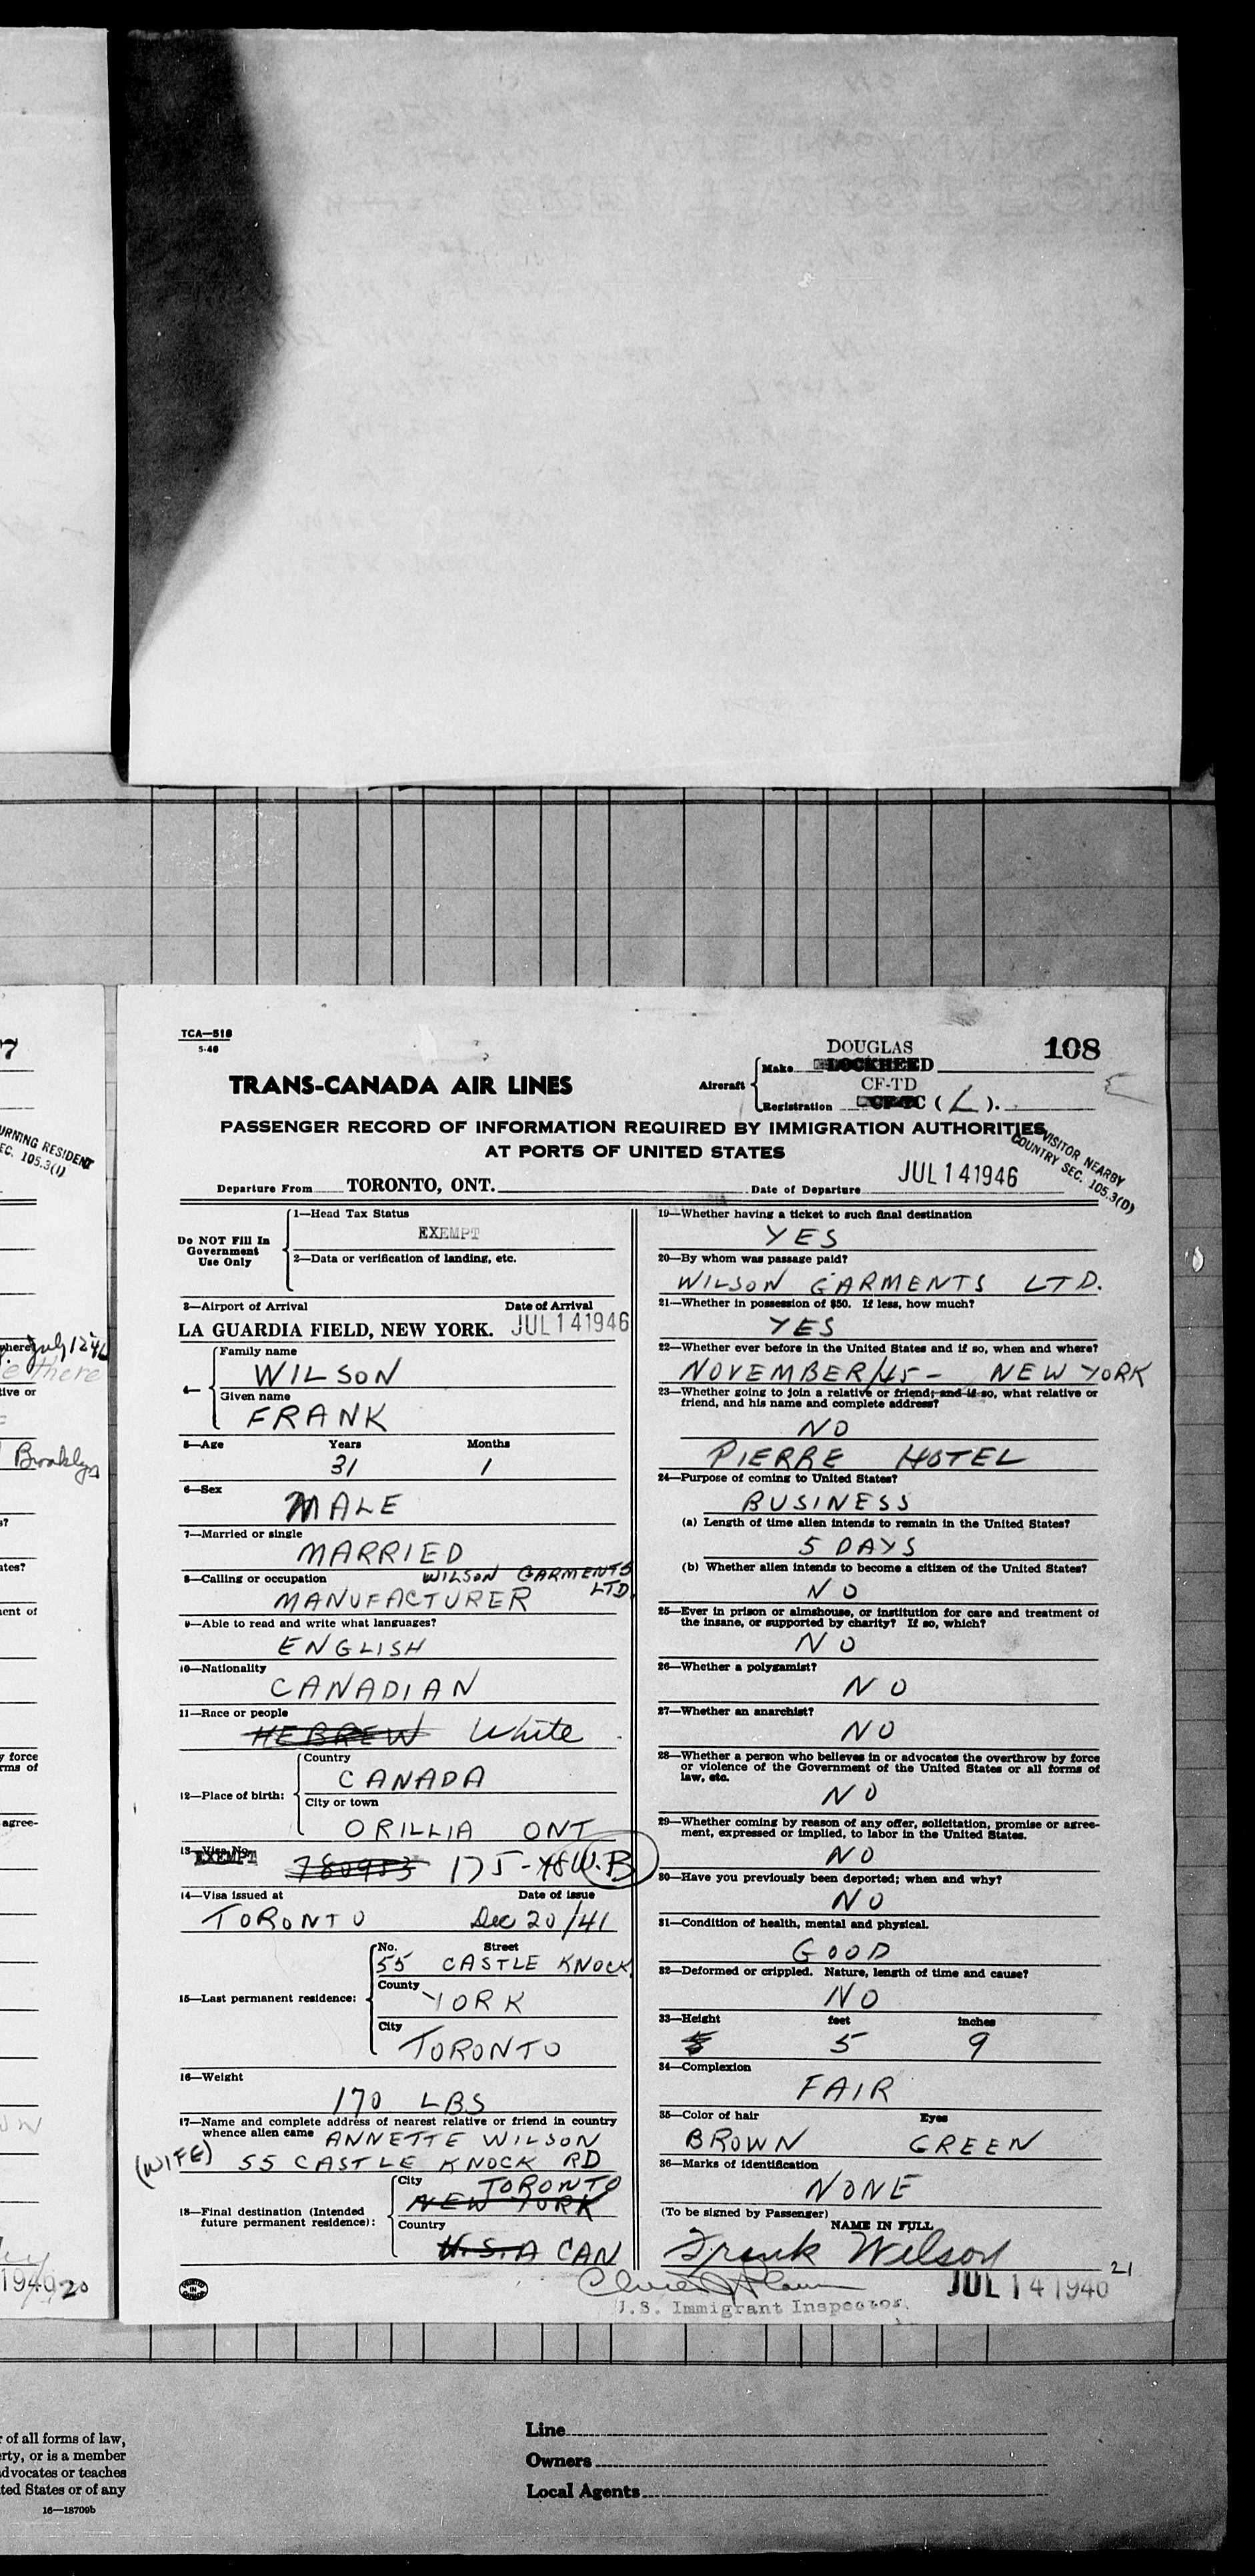 TCA—518
5-46
DOUGLAS
108
Make LOCKHEED
TRANS-CANADA AIR LINES
Aircraft
CF-TD
Registration (L).
PASSENGER RECORD OF INFORMATION REQUIRED BY IMMIGRATION AUTHORITIES
AT PORTS OF UNITED STATES
VISITOR NEARBY
COUNTRY SEC. 105.3(D)
Departure From TORONTO, ONT. Date of Departure JUL 14 1946
Do NOT Fill In
Government
Use Only
1—Head Tax Status
EXEMPT
2—Data or verification of landing, etc.
3—Airport of Arrival Date of Arrival
LA GUARDIA FIELD, NEW YORK. JUL 14 1946
4—
Family name
WILSON
Given name
FRANK
5—Age Years Months
31 1
6—Sex
MALE
7—Married or single
MARRIED
8—Calling or occupation WILSON GARMENTS
LTD.
MANUFACTURER
9—Able to read and write what languages?
ENGLISH
10—Nationality
CANADIAN
11—Race or people
HEBREW White
12—Place of birth:
Country
CANADA
City or town
ORILLIA ONT
13—Visa No.
EXEMPT 780983 175-48 W.B
14—Visa issued at Date of issue
TORONTO Dec 20/41
15—Last permanent residence:
No. Street
55 CASTLE KNOCK
County
YORK
City
TORONTO
16—Weight
170 LBS
17—Name and complete address of nearest relative or friend in country
whence alien came ANNETTE WILSON
(WIFE) 55 CASTLE KNOCK RD
18—Final destination (Intended
future permanent residence):
City TORONTO
NEW YORK
Country
U.S.A CAN
PRINTED
IN
CANADA
19—Whether having a ticket to such final destination
YES
20—By whom was passage paid?
WILSON GARMENTS LTD.
21—Whether in possession of $50. If less, how much?
YES
22—Whether ever before in the United States and if so, when and where?
NOVEMBER/45 - NEW YORK
23—Whether going to join a relative or friend; and if so, what relative or
friend, and his name and complete address?
NO
PIERRE HOTEL
24—Purpose of coming to United States?
BUSINESS
(a) Length of time alien intends to remain in the United States?
5 DAYS
(b) Whether alien intends to become a citizen of the United States?
NO
25—Ever in prison or almshouse, or institution for care and treatment of
the insane, or supported by charity? If so, which?
NO
26—Whether a polygamist?
NO
27—Whether an anarchist?
NO
28—Whether a person who believes in or advocates the overthrow by force
or violence of the Government of the United States or all forms of
law, etc.
NO
29—Whether coming by reason of any offer, solicitation, promise or agree-
ment, expressed or implied, to labor in the United States.
NO
30—Have you previously been deported; when and why?
NO
31—Condition of health, mental and physical.
GOOD
32—Deformed or crippled. Nature, length of time and cause?
NO
33—Height feet inches
5 9
34—Complexion
FAIR
35—Color of hair Eyes
BROWN GREEN
36—Marks of identification
NONE
(To be signed by Passenger)
NAME IN FULL
Frank Wilson
21
JUL 14 1940
U.S. Immigrant Inspector.
URNING RESIDENT
EC. 105.3(1)
where July 12 46
there
tive or
Brooklyn
s?
ates?
ment of
y force
rms of
agree-
1940 20
of all forms of law,
erty, or is a member
advocates or teaches
ted States or of any
16—18709b
Line
Owners
Local Agents